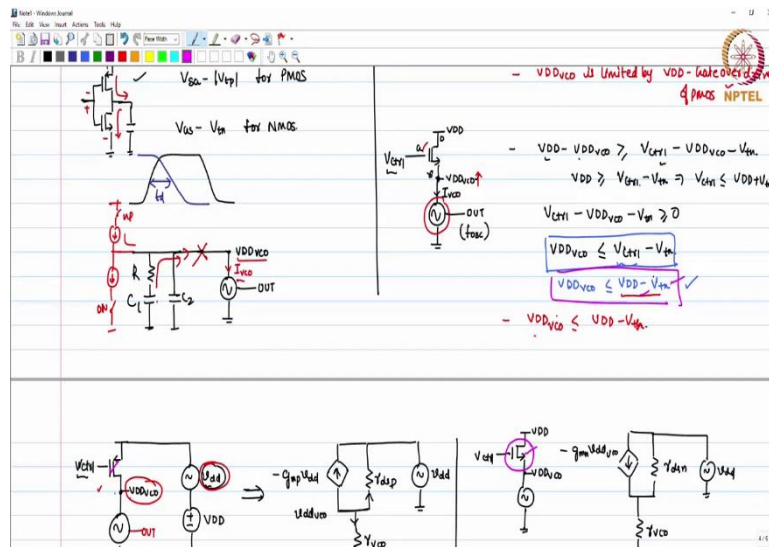 Note1 - Windows Journal
File Edit View Insert Actions Tools Help
Page Width
B I
NPTEL
VSG - |Vtp| for PMOS
VGS - Vtn for NMOS
td
UP
DN
R
C1
C2
VDDVCO
IVCO
OUT
- VDDVCO is limited by VDD - Gate overdrive
of PMOS
VDD
Vctrl
VDDVCO ↑
IVCO
OUT
(fosc)
- VDD - VDDVCO ≥ Vctrl - VDDVCO - Vtn
VDD ≥ Vctrl - Vtn ⇒ Vctrl ≤ VDD + Vtn
Vctrl - VDDVCO - Vtn ≥ 0
VDDVCO ≤ Vctrl - Vtn
VDDVCO ≤ VDD - Vtn ✓
- VDDVCO ≤ VDD - Vtn
Vctrl
VDDVCO
OUT
vdd
VDD
⇒
-gmp vdd
rdsp
vdd
vddvco
rvco
Vctrl
VDD
VDDVCO
-gmn vddvco
rdsn
vdd
rvco